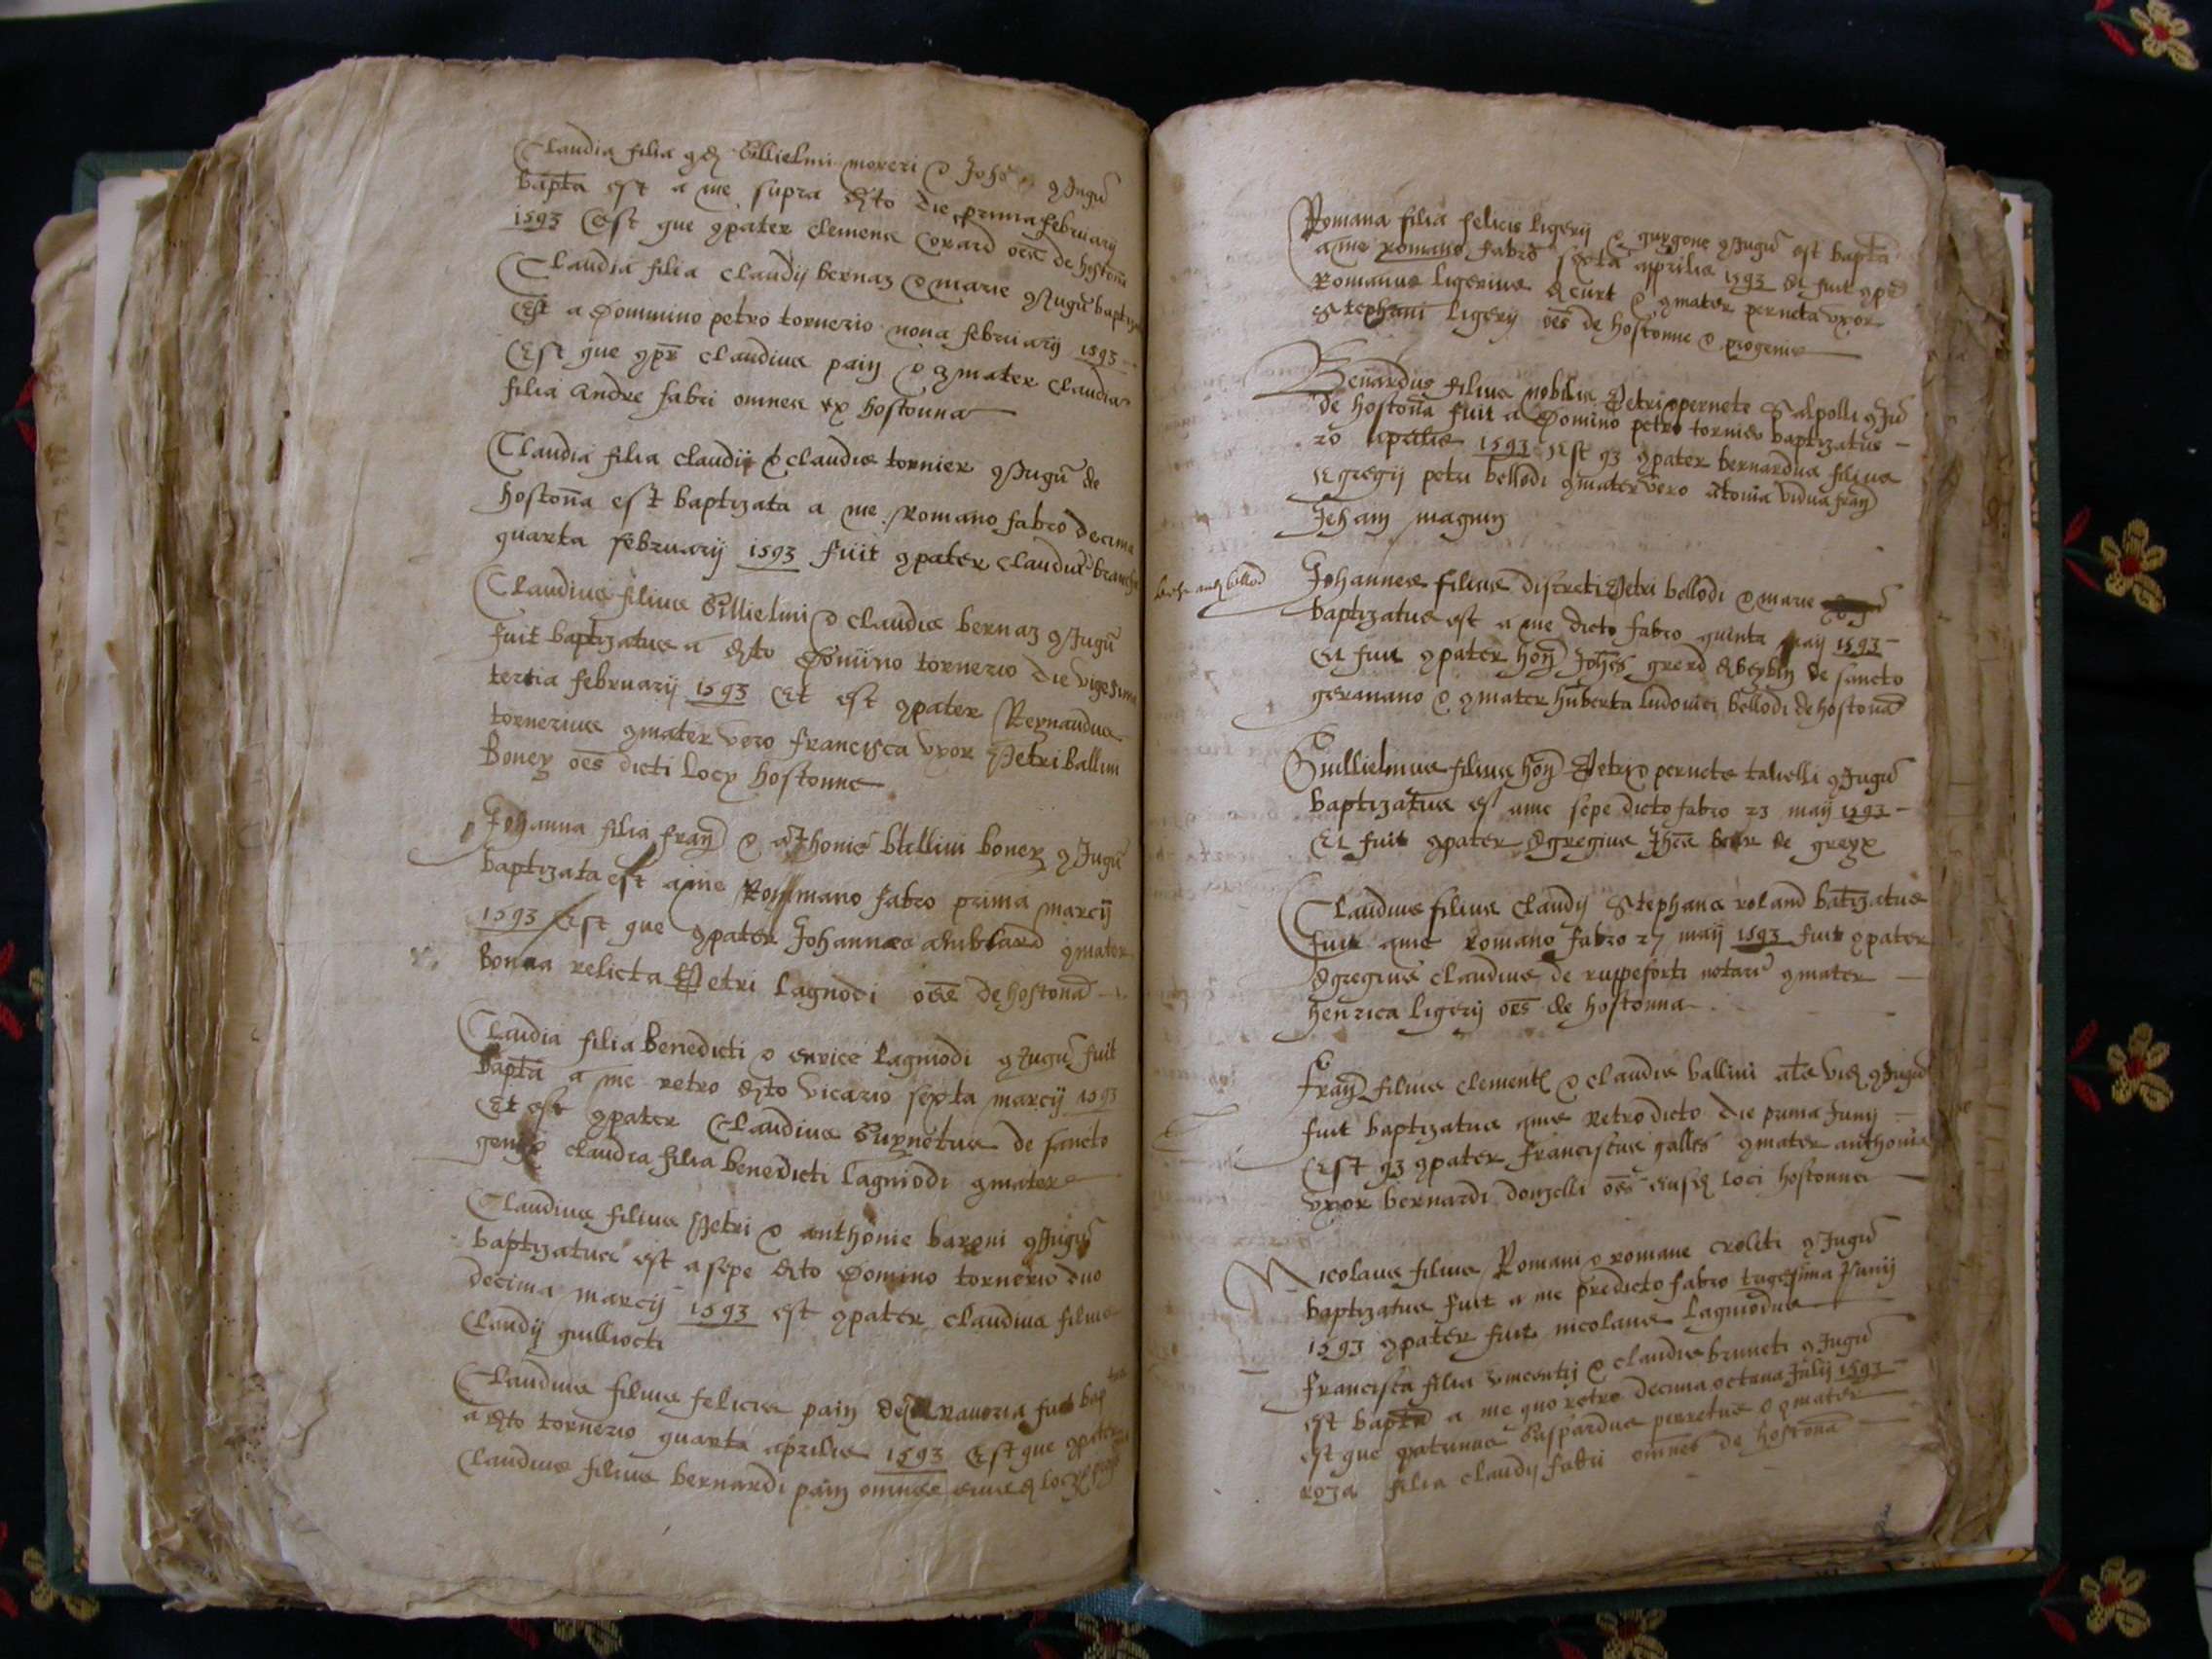 Claudia filia qd Gllielmi moreri & Joh 9Jugu
bapta est a me supra dto die prima february
1593 Est que 9pater clemens Coxard oes de hostona
Claudia filia Claudij bernaz & marie 9Jugu baptiza
Est a Dommino petro tornerio nona februarij 1593
Est que 9pr Claudius pain & 9mater Claudia
filia Andre fabri omnes ex hostonna
Claudia filia Claudij & Claudie tornier 9Jugu de
hostona est baptizata a me Romano fabro decima
quarta february 1593 fuit 9pater Claudus
Claudius filius Gllielmi & Claudie bernaz 9Jugu
fuit baptizatus a dto Domino tornerio die vigesima
tertia februarij 1593 Et est 9pater Reynaudus
tornerius 9mater vero francisca vxor Petri Ballini
Boney oes dicti locy hostonne
Johanna filia fran & Athonie bllini boney 9Jugu
baptizata est a me Rommano fabro prima marcij
1593 Est que 9pater Johannes 9mater
Bonna relicta Petri Lagnodi oes de hostona
Claudia filia Benedicti & Lagniodi 9Jugu fuit
bapta a me retro dto vicario sexta marcij 1593
Et est 9pater Claudius Guynetus de sancto
Claudia filia benedicti Lagniodi 9mater
Claudius filius Petri & anthonie baroni 9Jugu
baptizatus est a sepe dto Domino tornerio duo
decima marcij 1593 est 9pater Claudius filius
Claudij guilliocti
Claudius filius felicis pain de fuit bap
a dto tornerio quarta aprilis 1593 Est que 9pater
Claudius filius bernardi pain omnes
Romana filia felicis ligerij & gurgone 9Jugu est bapta
a me romano fabro sexta aprilis 1593 Et fuit 9pr
Romanus ligerius & 9mater perneta vxor
Stephani ligerij oes de hostonne & progenie
Benardus filius nobilis Petri & pernete Salpolli 9Ju
de hostona fuit a Domino petro tornier baptizatus
20 aprilis 1593 Est q3 9pater bernardus filius
Egregij petri bellodi 9mater vero Atonia vidua fran
Jehan magnin
Johannes filius discreti Petri bellodi & marie
baptizatus est a me dicto fabro quinta may 1593
Et fuit 9pater hon Johes de sancto
germano & 9mater huberta ludovici bellodi de hostona
Guillielmus filius hon Petri & pernete talvelli 9Jugu
baptizatus est a me sepe dicto fabro 23 maij 1593
Et fuit 9pater Egregius de greyx
Claudius filius Claudij Stephana roland batizatus
fuit a me romano fabro 27 maij 1593 fuit 9pater
Egregius Claudius de ruppeforti notari 9mater
henrica ligerij oes de hostonna
fran filius Clement & Claudie ballini 9Jugu
fuit baptizatus a me retro dicto die prima Junij
Est q3 9pater franciscus galles 9mater anthonia
vxor bernardi donzelli oes loci hostonne
Nicolaus filius Romani & romane croleti 9Jugu
baptizatus fuit a me predicto fabro trigesima Junij
1593 9pater fuit nicolaus Lagniodus
francisca filia vincentij & Claudie bruneti 9Jugu
est bapta a me quo retro decima octava Julij 1593
est que patrinus Gaspardus perretus & 9mater
roza filia Claudij fabri omnes de hostona